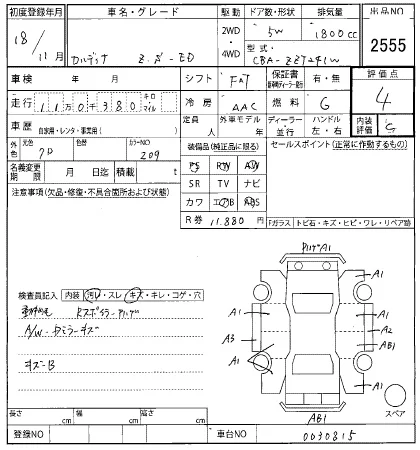 初度登録年月 車名・グレード 駆動 ドア数・形状 排気量 出品NO
18/11月 カルディナ Z.ズ-ED 2WD・4WD 5W 1800cc 2555
型式 CBA-ZZT241W
車検 年 月 シフト FAT 保証書 有・無 評価点
走行 11万0千380 キロ マイル 冷房 AAC 燃料 G 4
車歴 自家用・レンタ・事業用( ) 定員 人 外車モデル ディーラー・並行 ハンドル 左・右 内装評価 C
外色 元色 色替 カラーNO 209
装備品(純正品に限る) セールスポイント(正常に作動するもの)
名義変更期限 月 日迄 積載 t
PS PW AW
SR TV ナビ
カワ エアB ABS
R券 11.880円
注意事項(欠品・修復・不具合箇所および状態)
Fガラス トビ石・キズ・ヒビ・ワレ・リペア跡
検査員記入 内装 汚レ・スレ キズ・キレ・コゲ・穴
A/W
キズ-B
A1
A1
A1
A1
A3
A2
A1
AB1
A1
A1
AB1
スペア
長さ cm 幅 cm 高さ cm
登録NO 車台NO 0030815